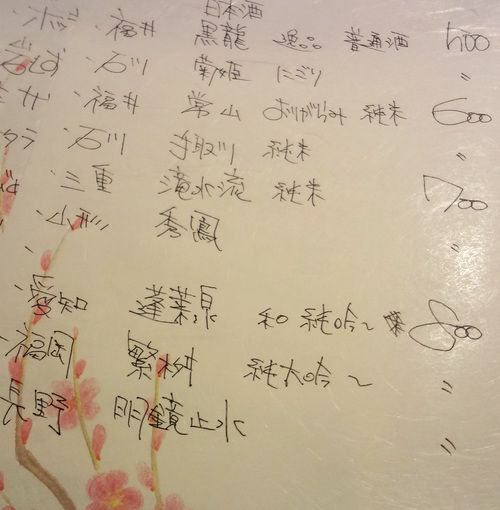 日本酒
福井 黒龍 逸品 普通酒 500
石川 菊姫 にごり 〃
福井 常山 おりがらみ 純米 600
石川 手取川 純米 〃
三重 滝水流 純米 700
山形 秀鳳 〃
愛知 蓬莱泉 和 純吟 800
福岡 繁桝 純大吟 〃
長野 明鏡止水 〃